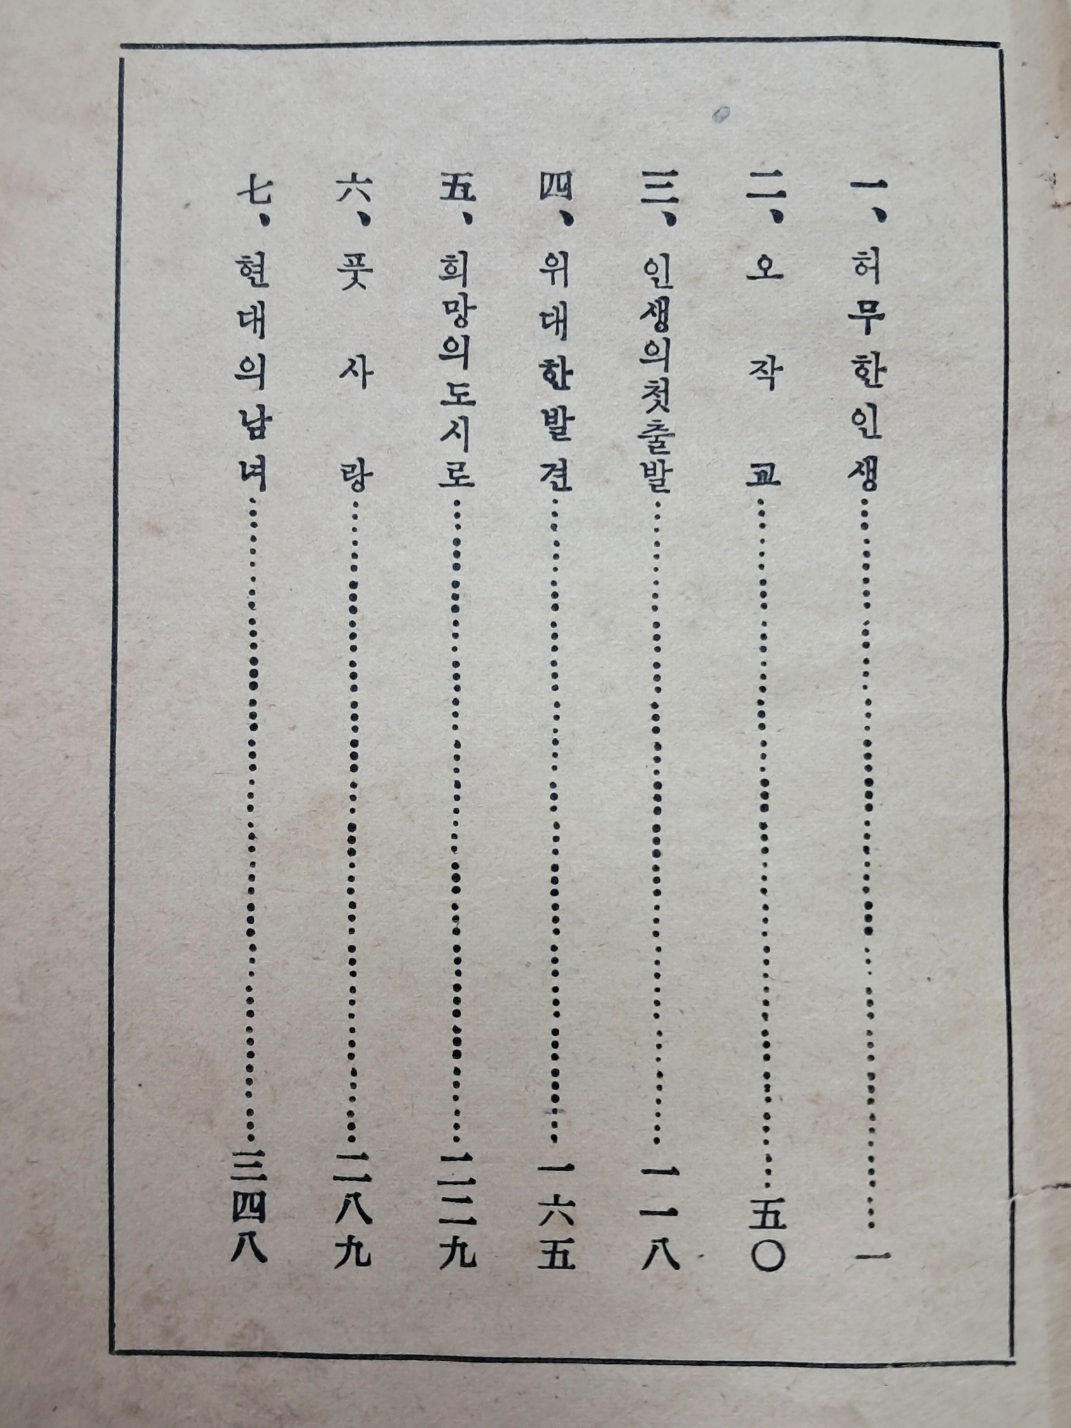 一、허무한인생……………一
二、오작교……………五〇
三、인생의첫출발……………一一八
四、위대한발견……………一六五
五、희망의도시로……………二二九
六、풋사랑……………二八九
七、현대의남녀……………三四八